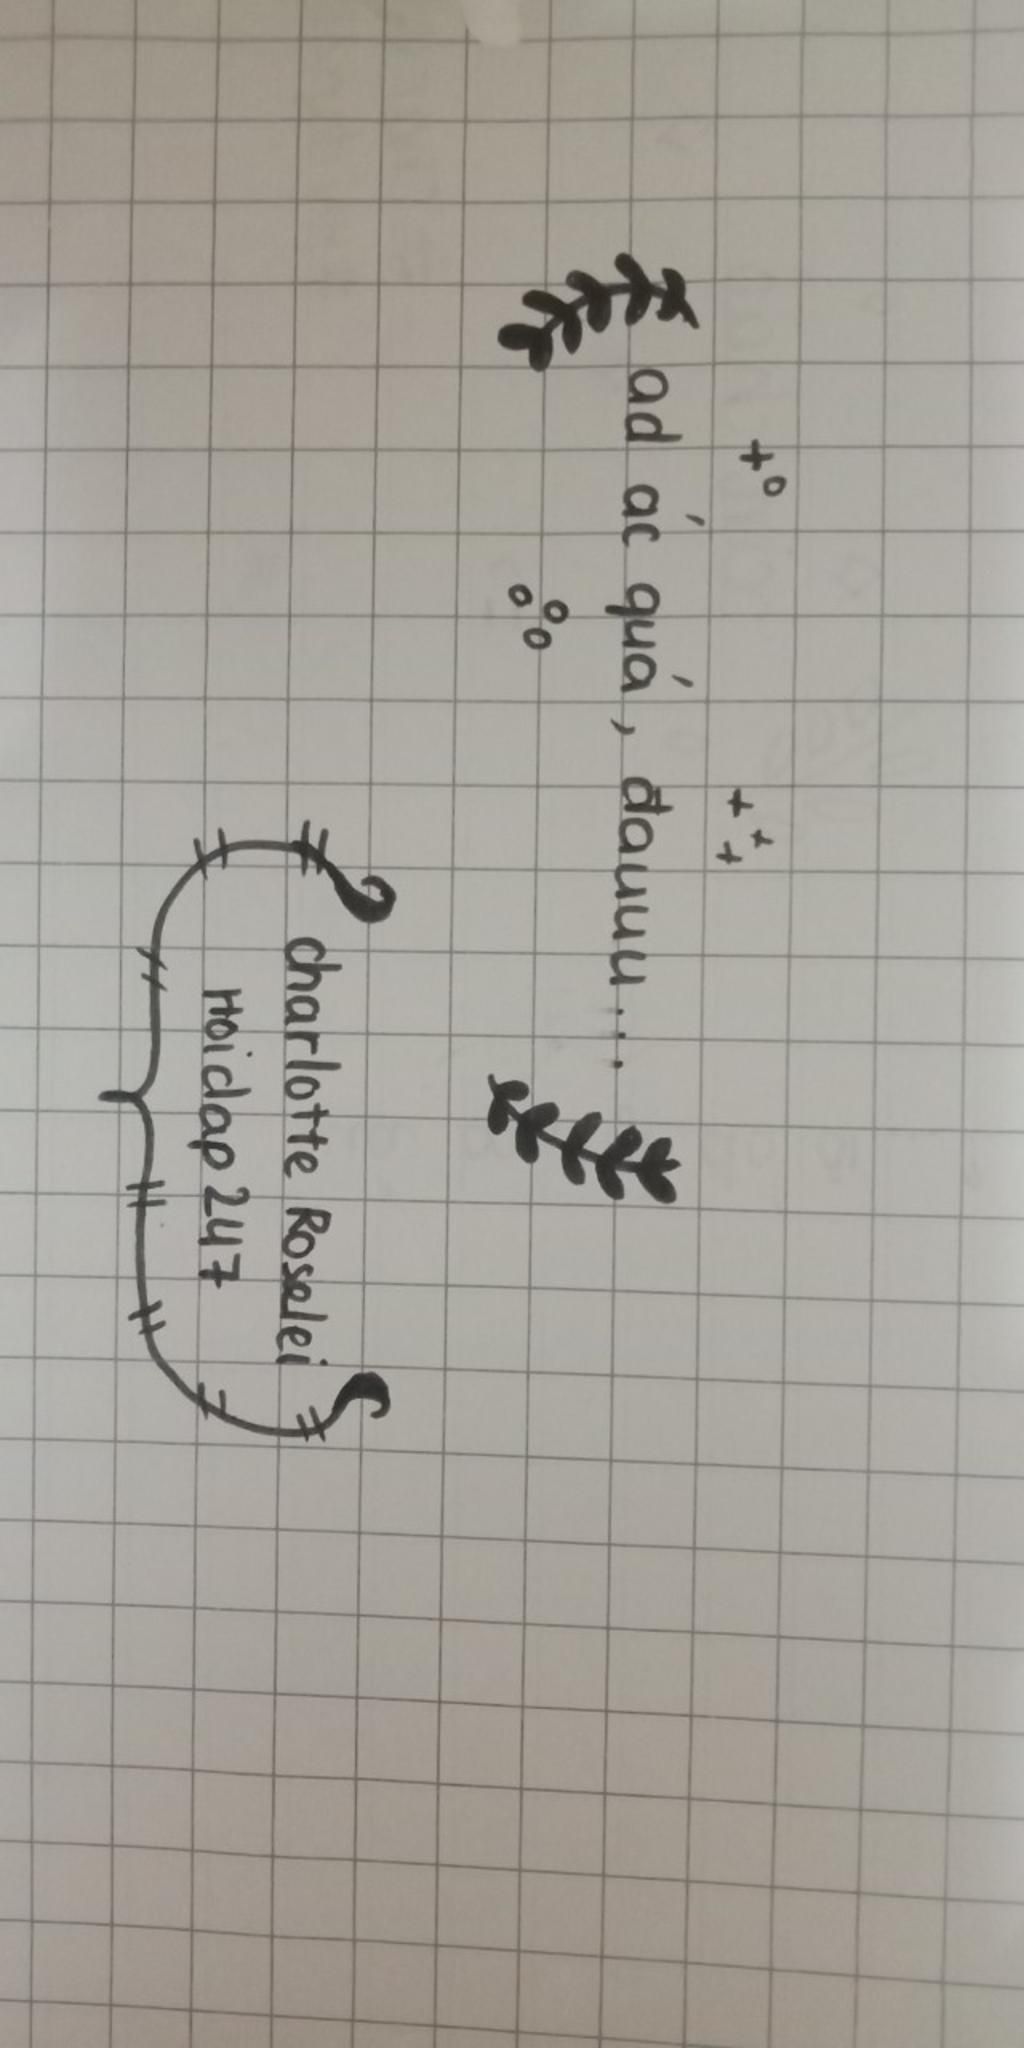 ad ác quá, đauuu...
Charlotte Roselei
Hoidap247